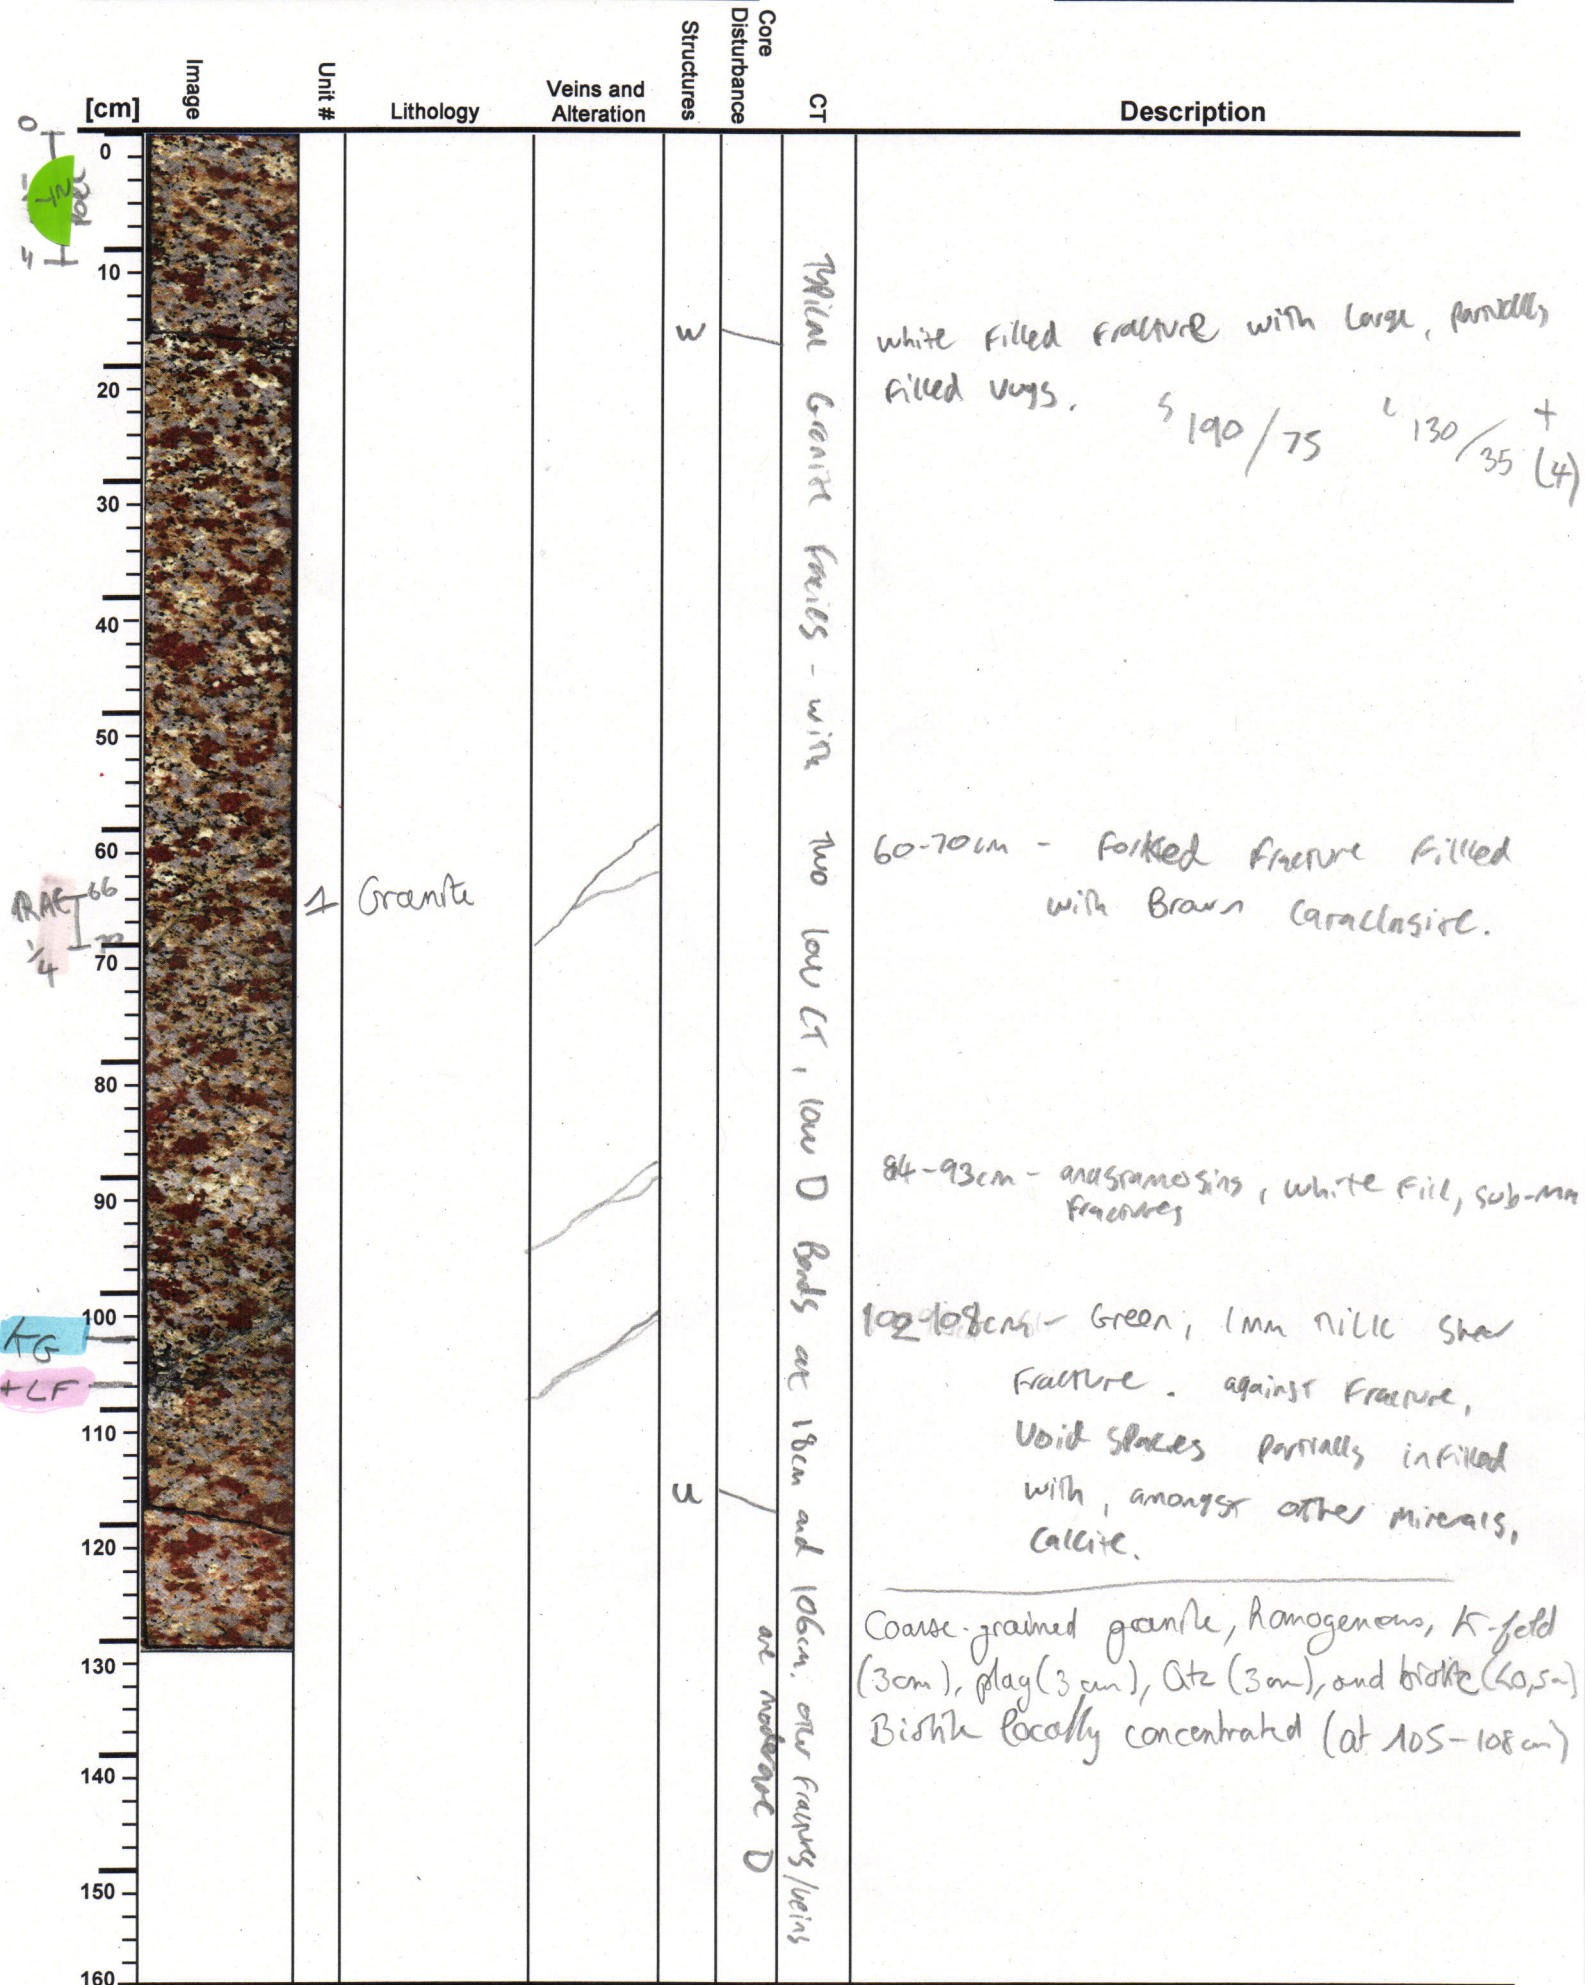 [cm]
Image
Unit #
Lithology
Veins and
Alteration
Structures
Core
Disturbance
CT
Description
0
0
1/4
4
10
20
30
40
50
60
66
70
1/4
70
80
90
100
KG
+LF
110
120
130
140
150
160
1
Granite
W
u
Typical Granite Facies - with Two low CT, low D Bands at 18cm and 106cm. other fractures/veins
are moderate D
white filled fracture with large, partially
filled vugs. S 190/75 L 130/35 + (4)
60-70cm - Forked fracture filled
with Brown Cataclasite.
84-93cm - anastamosing, white fill, sub-mm
fractures
102-108cm - Green, 1mm thick shear
fracture. against fracture,
void spaces partially infilled
with, amongst other minerals,
calcite.
Coarse-grained granite, homogenous, K-feld
(3cm), plag (3cm), Qtz (3cm), and biotite (<0,5cm)
Biotite locally concentrated (at 105-108cm)